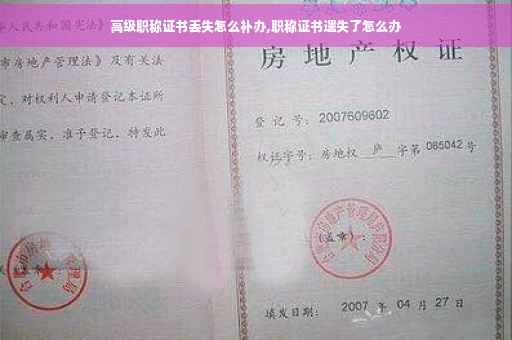 高级职称证书丢失怎么补办,职称证书遗失了怎么办
华人民共和国宪法》
市房地产管理法》及有关法
定，对权利人申请登记本证所
审查属实，准予登记，特发此
房地产权证
登 记 号：2007609602
权证字号：房地权 庐 字第 065042 号
(盖章)：
填发日期： 2007 年 04 月 27 日